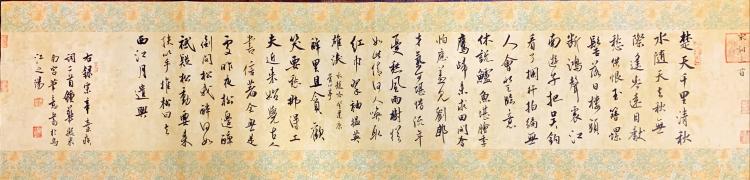 楚天千里清秋
水隨天去秋無
際遙岑遠目獻
愁供恨玉簪螺
髻落日樓頭
斷鴻聲裏江
南遊子把吳鉤
看了欄杆拍遍無
人會登臨意
休說鱸魚堪膾季
鷹歸未求田問舍
怕應羞見劉郎
才氣可惜流年
憂愁風雨樹猶
如此倩何人喚取
紅巾翠袖揾英
雄淚
水龍吟登建康
賞心亭
醉裏且貪歡
笑要愁那得工
夫近來始覺古人
書信著全無是
處昨夜松邊醉
倒問松我醉何如
只疑松動要來
扶以手推松曰去
西江月遣興
右錄宋辛棄疾
詞二首